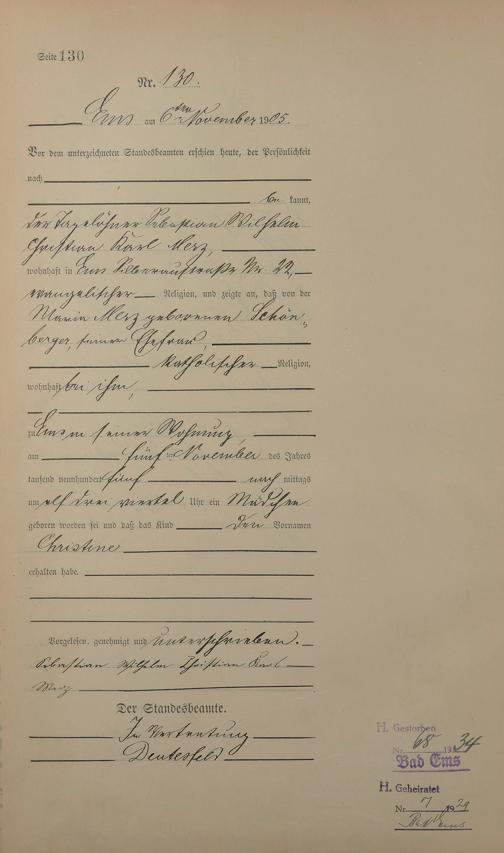 Seite 130
Nr. 130.
Ems am 6ten November 1905.
Vor dem unterzeichneten Standesbeamten erschien heute, der Persönlichkeit
nach
be kannt,
der Tagelöhner Sebastian Wilhelm
Christian Karl Merz,
wohnhaft in Ems Silberaustraße Nr. 22,
evangelischer Religion, und zeigte an, daß von der
Maria Merz geborenen Schön-
berger, seiner Ehefrau,
katholischer Religion,
wohnhaft bei ihm,
zu Ems in seiner Wohnung,
am fünften November des Jahres
tausend neunhundert fünf nach mittags
um elf drei viertel Uhr ein Mädchen
geboren worden sei und daß das Kind den Vornamen
Christine
erhalten habe.
Vorgelesen, genehmigt und unterschrieben.
Sebastian Wilhelm Christian Karl
Merz
Der Standesbeamte.
In Vertretung
H. Gestorben
Nr. 68 1934
Bad Ems
H. Geheiratet
Nr. 7 1929
Bad Ems